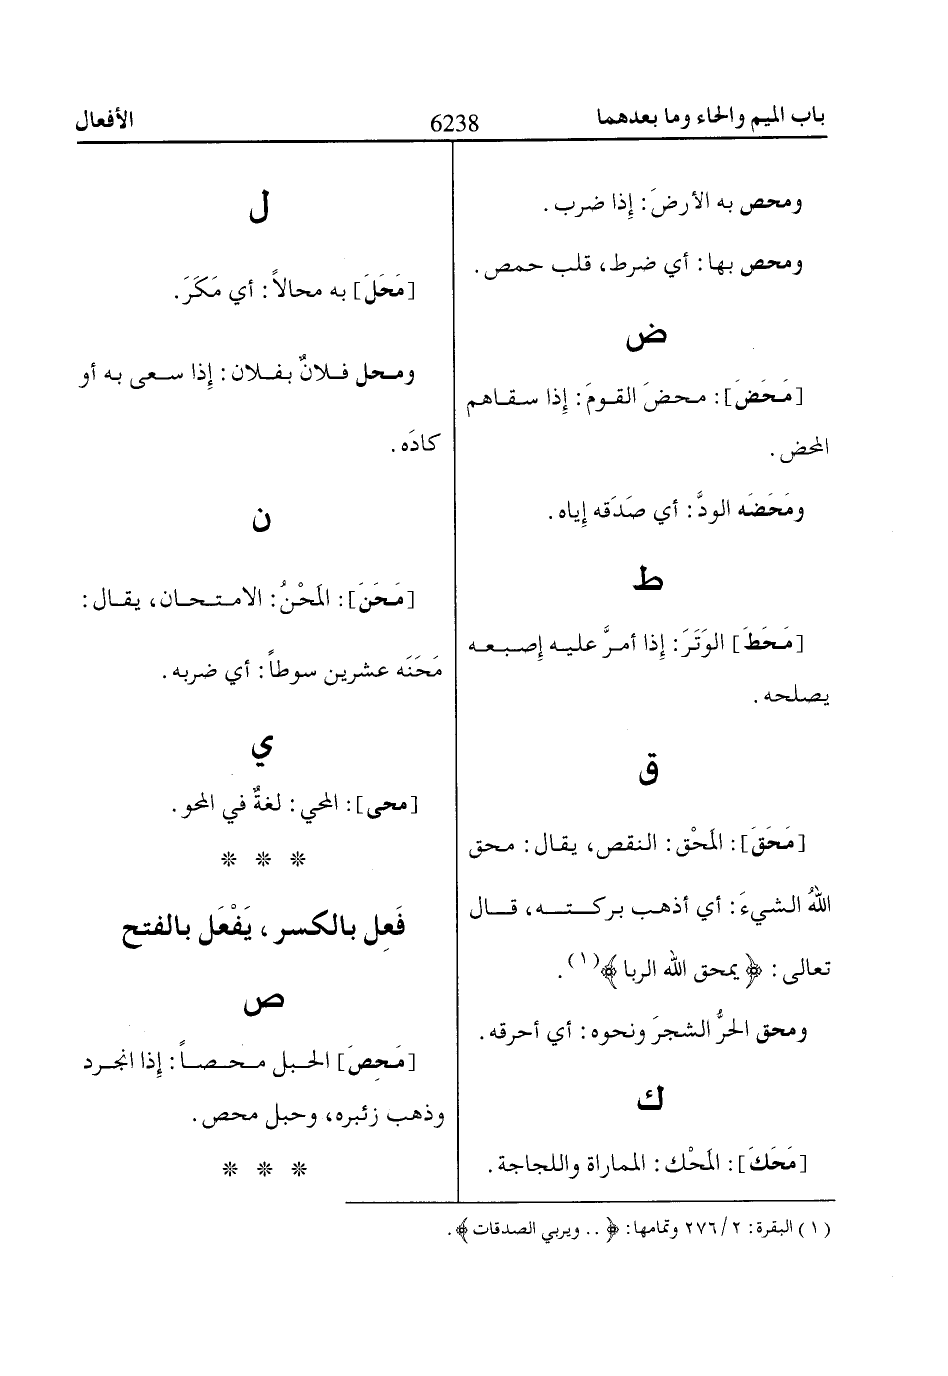 باب الميم والحاء وما بعدهما
6238
الأفعال
ومحص به الأرضَ: إذا ضرب.
ومحص بها: أي ضرط، قلب حمص.
ض
[مَحَضَ]: محضَ القومَ: إذا سقاهم
المحض.
ومَحَضَه الودَّ: أي صَدَقه إياه.
ط
[مَحَطَ] الوَتَرَ: إذا أمرَّ عليه إصبعه
يصلحه.
ق
[مَحَقَ]: المَحْق: النقص، يقال: محق
اللهُ الشيءَ: أي أذهب بركته، قال
تعالى: ﴿يمحق الله الربا﴾(١).
ومحق الحرُّ الشجرَ ونحوه: أي أحرقه.
ك
[مَحَكَ]: المَحْك: المماراة واللجاجة.
ل
[مَحَلَ] به محالاً: أي مَكَرَ.
ومحل فلانٌ بفلان: إذا سعى به أو
كادَه.
ن
[مَحَنَ]: المَحْنُ: الامتحان، يقال:
مَحَنَه عشرين سوطاً: أي ضربه.
ي
[محى]: المحي: لغةٌ في المحو.
* * *
فَعِل بالكسر، يَفْعَل بالفتح
ص
[مَحِصَ] الحبل محصاً: إذا انجرد
وذهب زئبره، وحبل محص.
* * *
(١) البقرة: ٢/ ٢٧٦ وتمامها: ﴿.. ويربي الصدقات﴾.